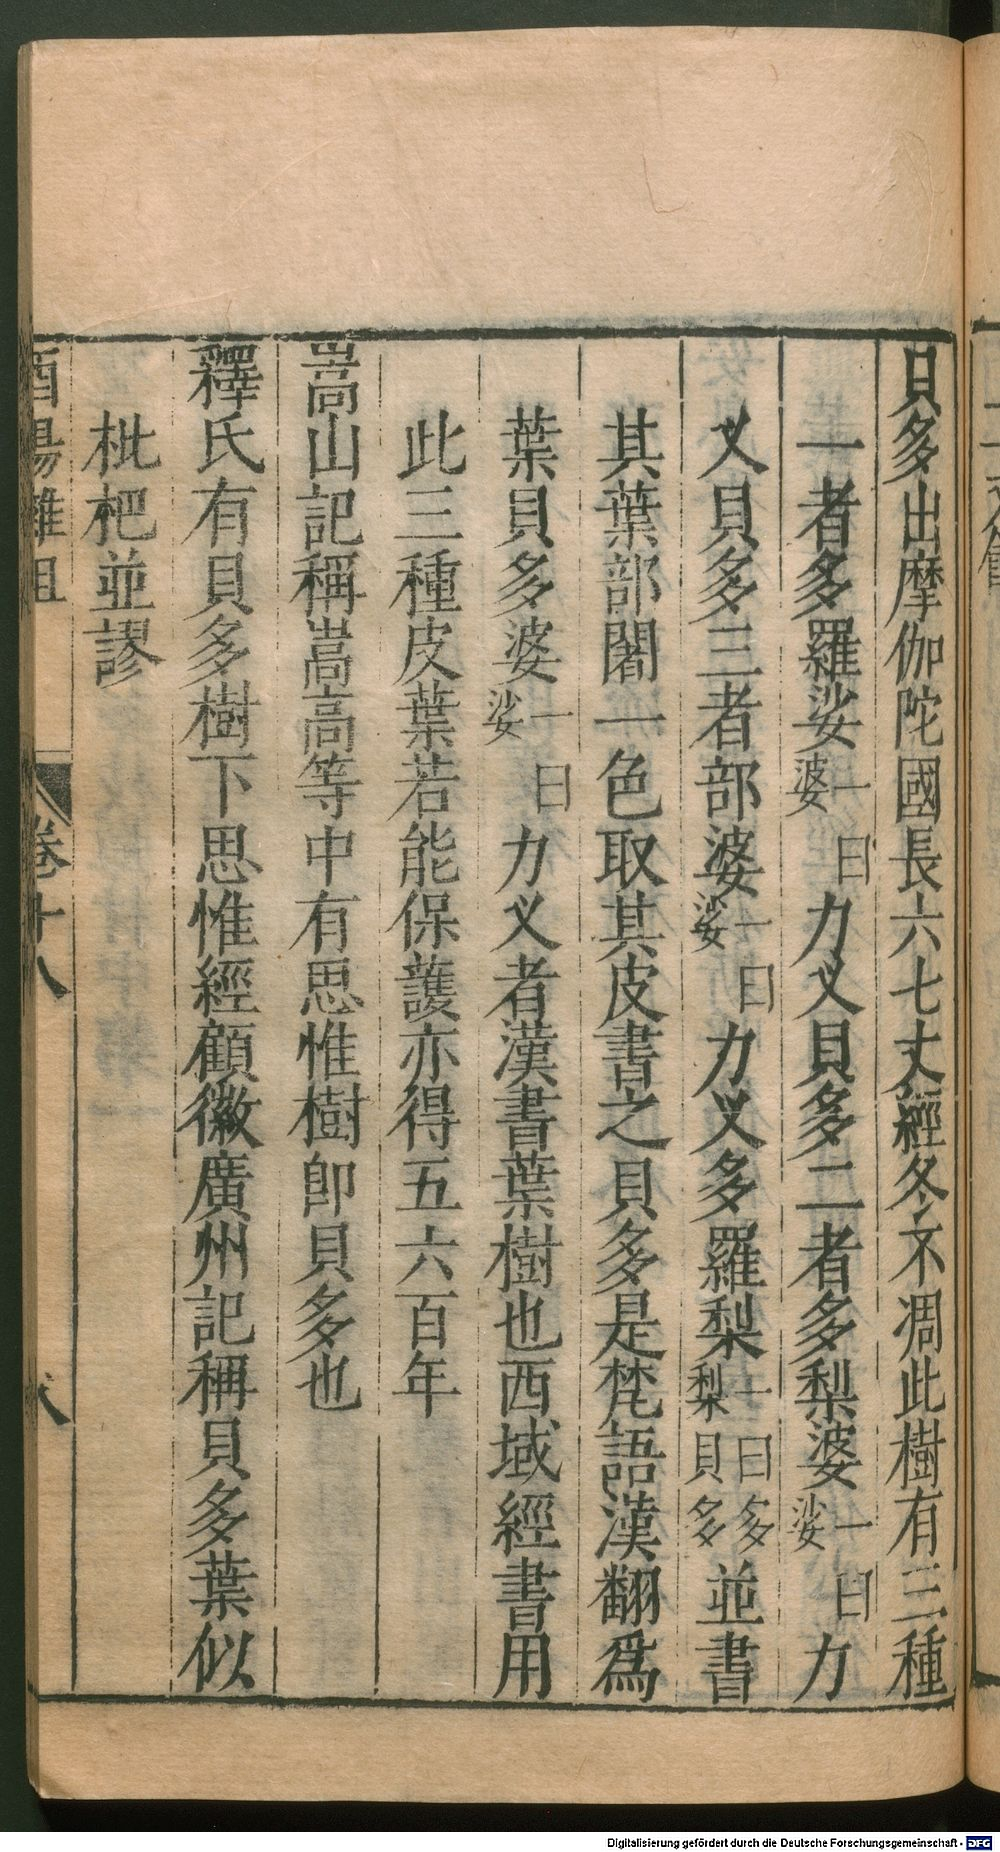 貝多出摩伽陀國長六七丈經冬不凋此樹有三種
一者多羅娑婆一曰力叉貝多二者多梨婆娑一曰力
叉貝多三者部婆娑一曰力叉多羅梨一曰多梨貝多並書
其葉部闍一色取其皮書之貝多是梵語漢翻爲
葉貝多婆娑一曰力叉者漢書葉樹也西域經書用
此三種皮葉若能保護亦得五六百年
嵩山記稱嵩高等中有思惟樹卽貝多也
釋氏有貝多樹下思惟經顧徽廣州記稱貝多葉似
枇杷並謬
酉陽雜俎 卷十八
Digitalisierung gefördert durch die Deutsche Forschungsgemeinschaft - DFG